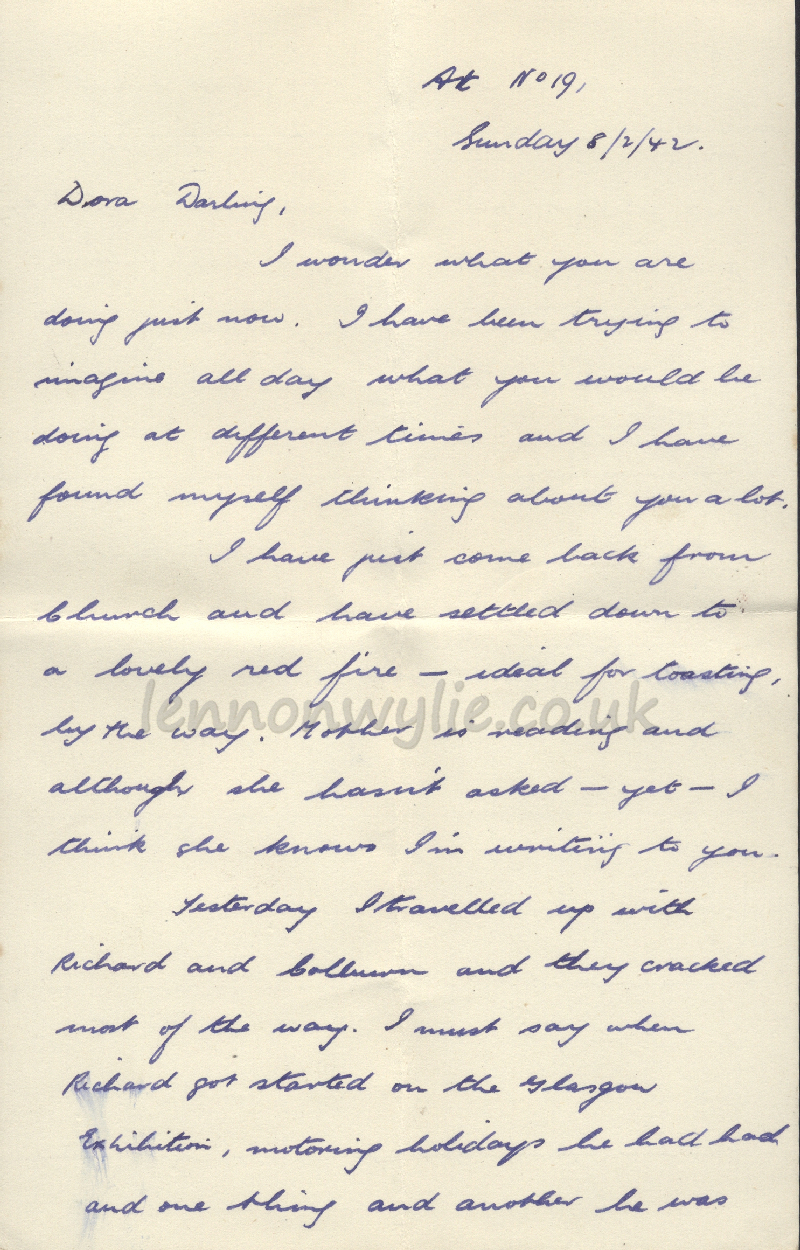 At No 19,
Sunday 8/2/42.
Dora Darling,
I wonder what you are
doing just now. I have been trying to
imagine all day what you would be
doing at different times and I have
found myself thinking about you a lot.
I have just come back from
Church and have settled down to
a lovely red fire — ideal for toasting,
by the way. Mother is reading and
although she hasn't asked — yet — I
think she knows I'm writing to you.
Yesterday I travelled up with
Richard and and they cracked
most of the way. I must say when
Richard got started on the Glasgow
Exhibition, motoring holidays he had had
and one thing and another he was
lennonwylie.co.uk